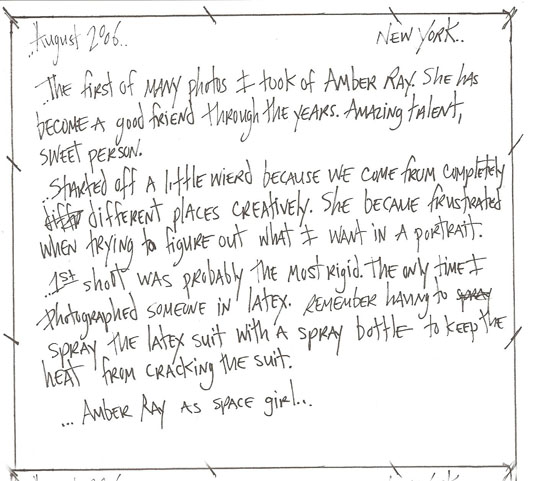 ..August 2006..
NEW YORK..
..The first of MANY photos I took of AMBER RAY. She has
become A good friend through the years. Amazing talent,
sweet person.
..Started off A little wierd because we come from completely
different places creatively. She became frustrated
when trying to figure out what I want in A portrait.
..1st shoot was probably the most rigid. The only time I
photographed someone in latex. Remember having to spray
spray the latex suit with a spray bottle to keep the
heat from cracking the suit.
... AMBER RAY AS space girl...